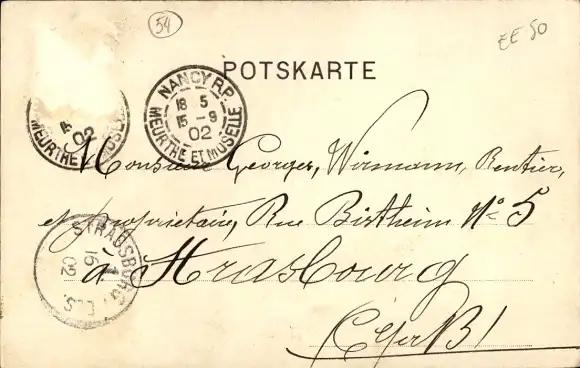 54
EE 50
POTSKARTE
NANCY R.P.
18 5
15-9
02
MEURTHE ET MOSELLE
02
MEURTHE MOSELLE
Monsieur Georges, Wirmann, Rentier,
et propriétaire, Rue Birtheim Nº 5
à Strasbourg
STRASSBURG, ELS.
1
16
02